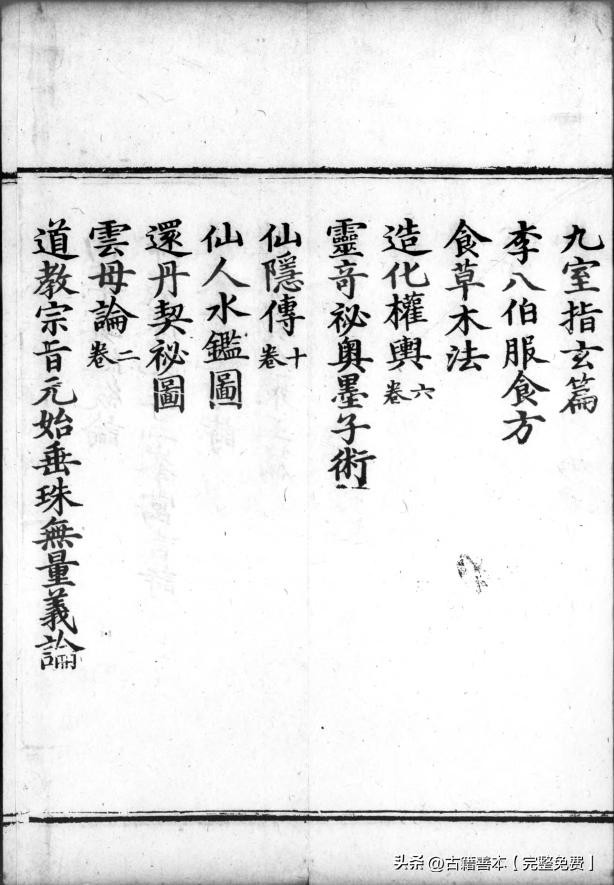 九室指玄篇
李八伯服食方
食草木法
造化權輿六卷
靈竒祕奥墨子術
仙隱傳十卷
仙人水鑑圖
還丹契祕圖
雲母論二卷
道教宗旨元始垂珠無量義論
头条@古籍善本【完整免费】